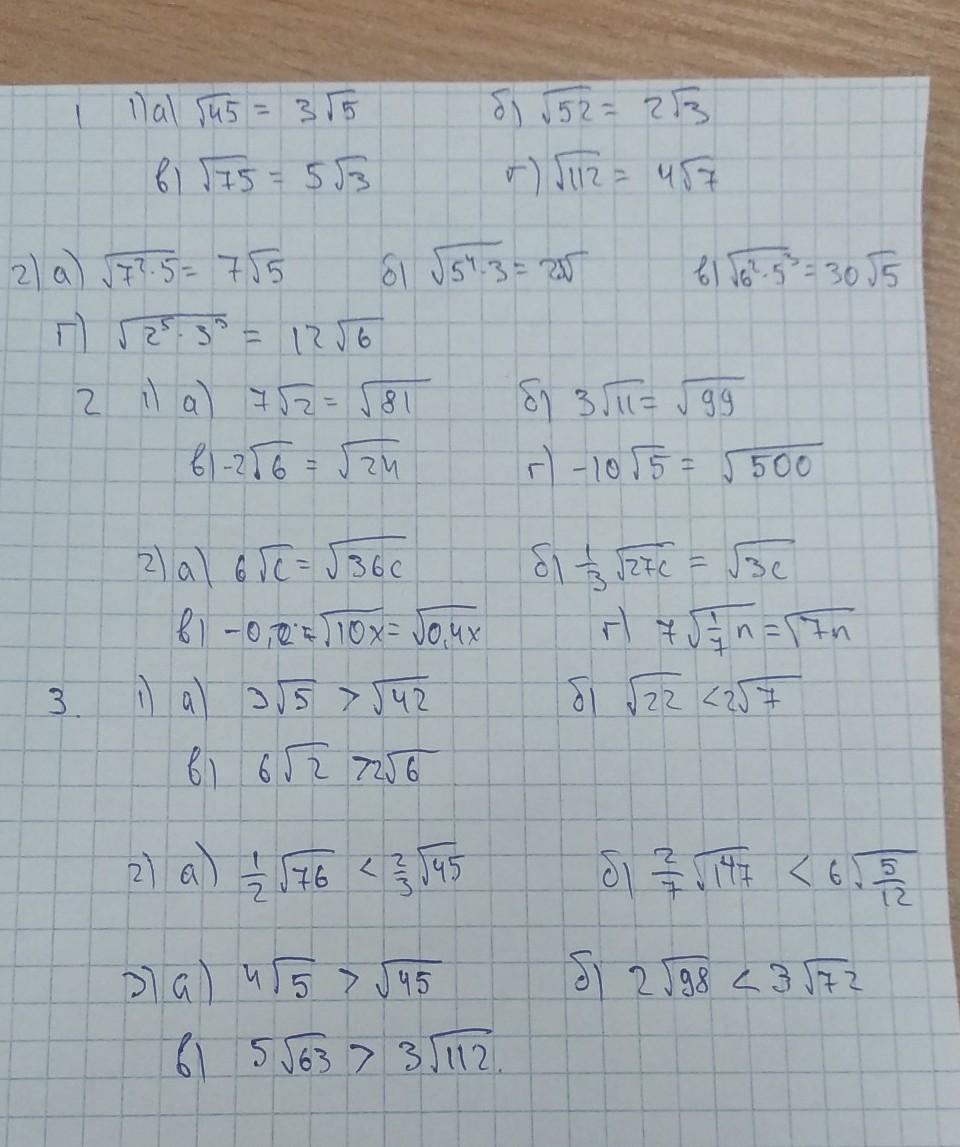 1 1) а) √45 = 3√5 б) √52 = 2√3
в) √75 = 5√3 г) √112 = 4√7
2) а) √7²·5 = 7√5 б) √5⁴·3 = в) √6²·5³ = 30√5
г) √2⁵·3³ = 12√6
2 1) а) 7√2 = √81 б) 3√11 = √99
в) -2√6 = √24 г) -10√5 = √500
2) а) 6√c = √36c б) 1/3 √27c = √3c
в) -0,2 = √10x = √0,4x г) 7√1/7 n = √7n
3. 1) а) 3√5 > √42 б) √22 < 2√7
в) 6√2 > 2√6
2) а) 1/2 √76 < 2/3 √45 б) 2/7 √147 < 6√5/12
3) а) 4√5 > √45 б) 2√98 < 3√72
в) 5√63 > 3√112.